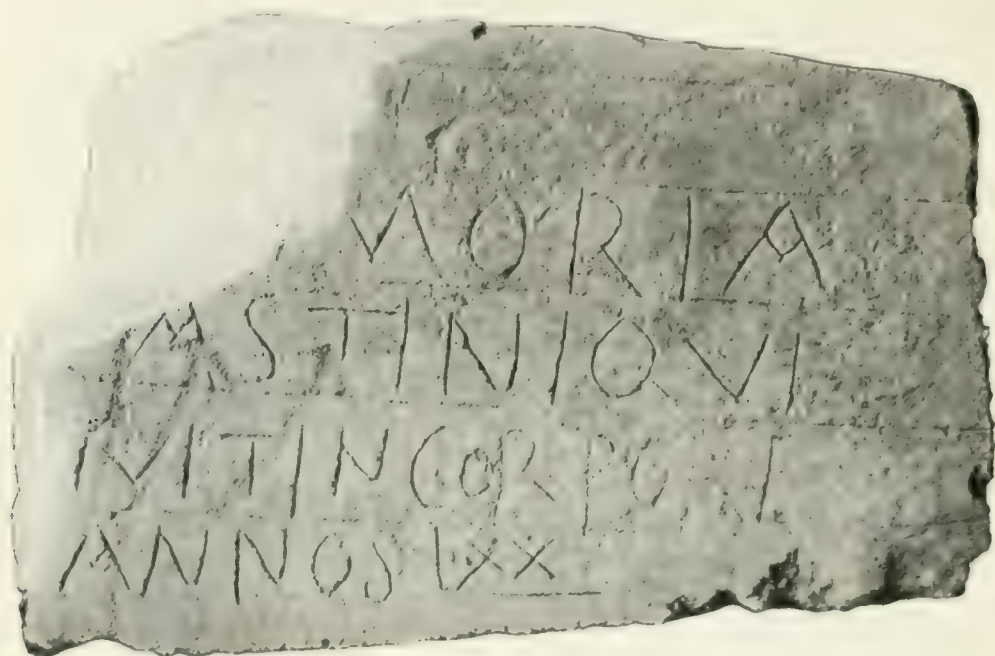 MORIA
AVSTINI QVI
IXIT IN CORPORE
ANNOS LXX